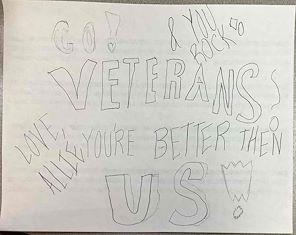 GO!
& YOU
ROCK
VETERANS
LOVE,
ALLIE
YOU'RE BETTER THEN
US!